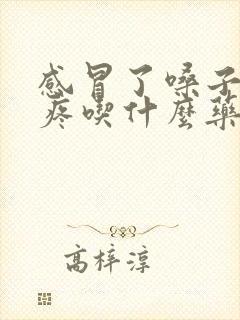 感冒了嗓子
疼喫什麼藥
高梓淳